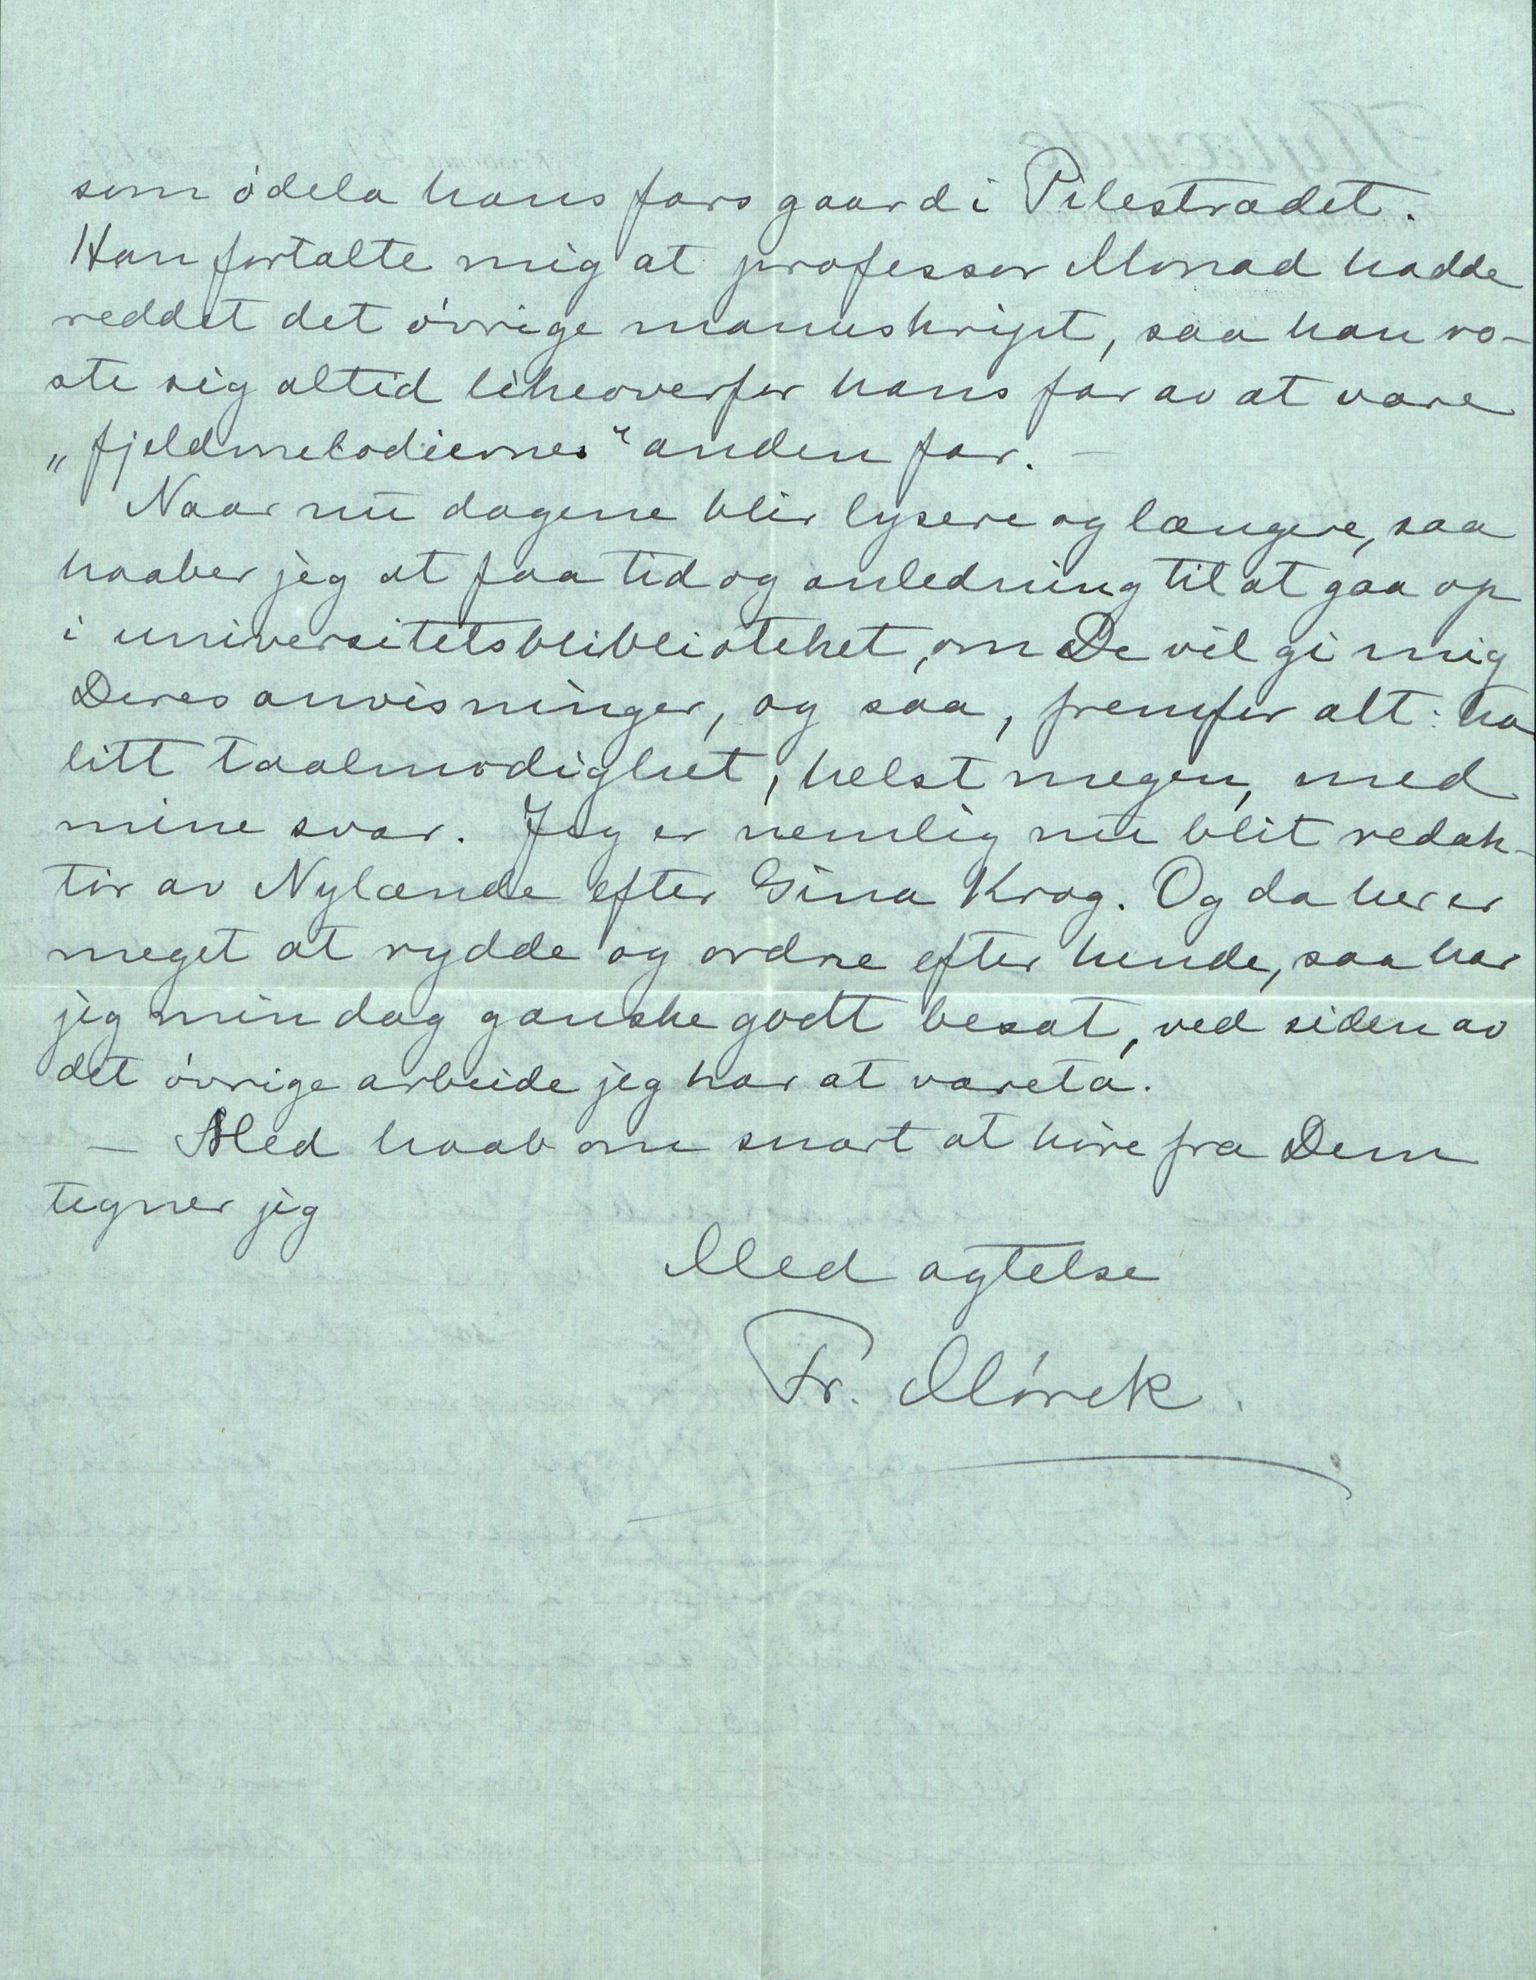 som ødela hans fars gaard i Pilestrædet.
Han fortalte mig at professor Monrad hadde
reddet det øvrige manuskript, saa han ro-
ste sig altid likeoverfor hans far av at være
„fjeldmelodiernes“ anden far. —
Naar nu dagene blir lysere og længere, saa
haaber jeg at faa tid og anledning til at gaa op
i universitetsbliblioteket, om De vil gi mig
Deres anvisninger, og saa, fremfor alt: ha
litt taalmodighet, helst megen, med
mine svar. Jeg er nemlig nu blit redak-
tør av Nylænde efter Gina Krog. Og da her er
meget at rydde og ordne efter hende, saa har
jeg min dag ganske godt besat, ved siden av
det øvrige arbeide jeg har at vareta.
— Med haab om snart at høre fra Dem
tegner jeg
Med agtelse
Fr. Mørck.